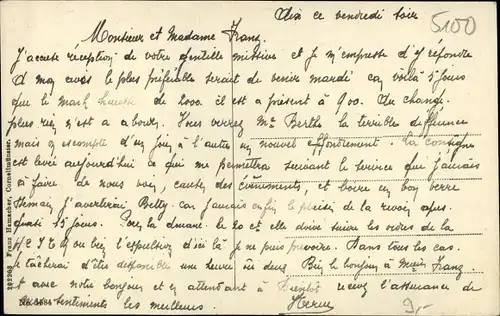 Aix ce vendredi soir
5100
Monsieur et Madame Franz.
J'accuse réception de votre gentille missive et je m'empresse d'y répondre
A mon avis le plus préférable serait de venir mardi car voilà 5 jours
que le mark hausse de 2000 il est à présent à 900. Au change
plus rien n'est à Vous verrez Mr Berthe la terrible
mais on escompte d'un jour à l'autre un nouvel effondrement. La consigne
est levée aujourd'hui ce qui me permettra suivant le service que j'aurais
à faire de vous voir, causer des événements, et boire un bon verre
Demain j'avertirai Betty car j'aurais enfin le plaisir de la revoir après
quasi 15 jours. le 20 et elle doit suivre les ordres de la
H.C.I.T.R ou bien l'expulsion d'ici là je ne puis Dans tous les cas
je tâcherai d'être disponible une heure ou deux. Bien le bonjour à Franz
et avec notre bonjour et en attendant à bientôt recevez l'assurance de
sentiments les meilleurs.
9,-
162965 Franz Hemacher, Cornelimünster.